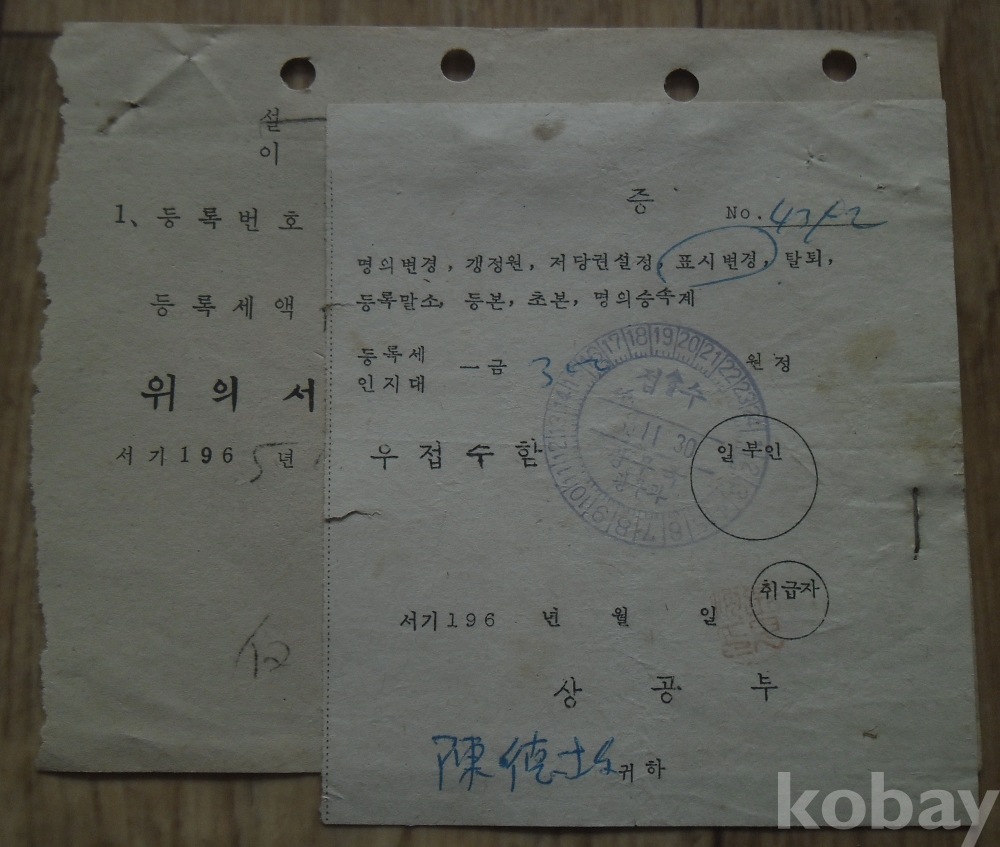 설
이
1、등록번호
등록세액
위의서
서기196 5년
증
No.
명의변경, 갱정원, 저당권설정, 표시변경, 탈퇴,
등록말소, 등본, 초본, 명의승속계
등록세
인지대
一금
원정
접수
11 30
우접수함
일부인
취급자
서기196 년 월 일
상공부
陳德 귀하
kobay